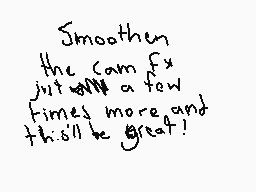 Smoothen
the cam fx
just a few
times more and
this'll be great!